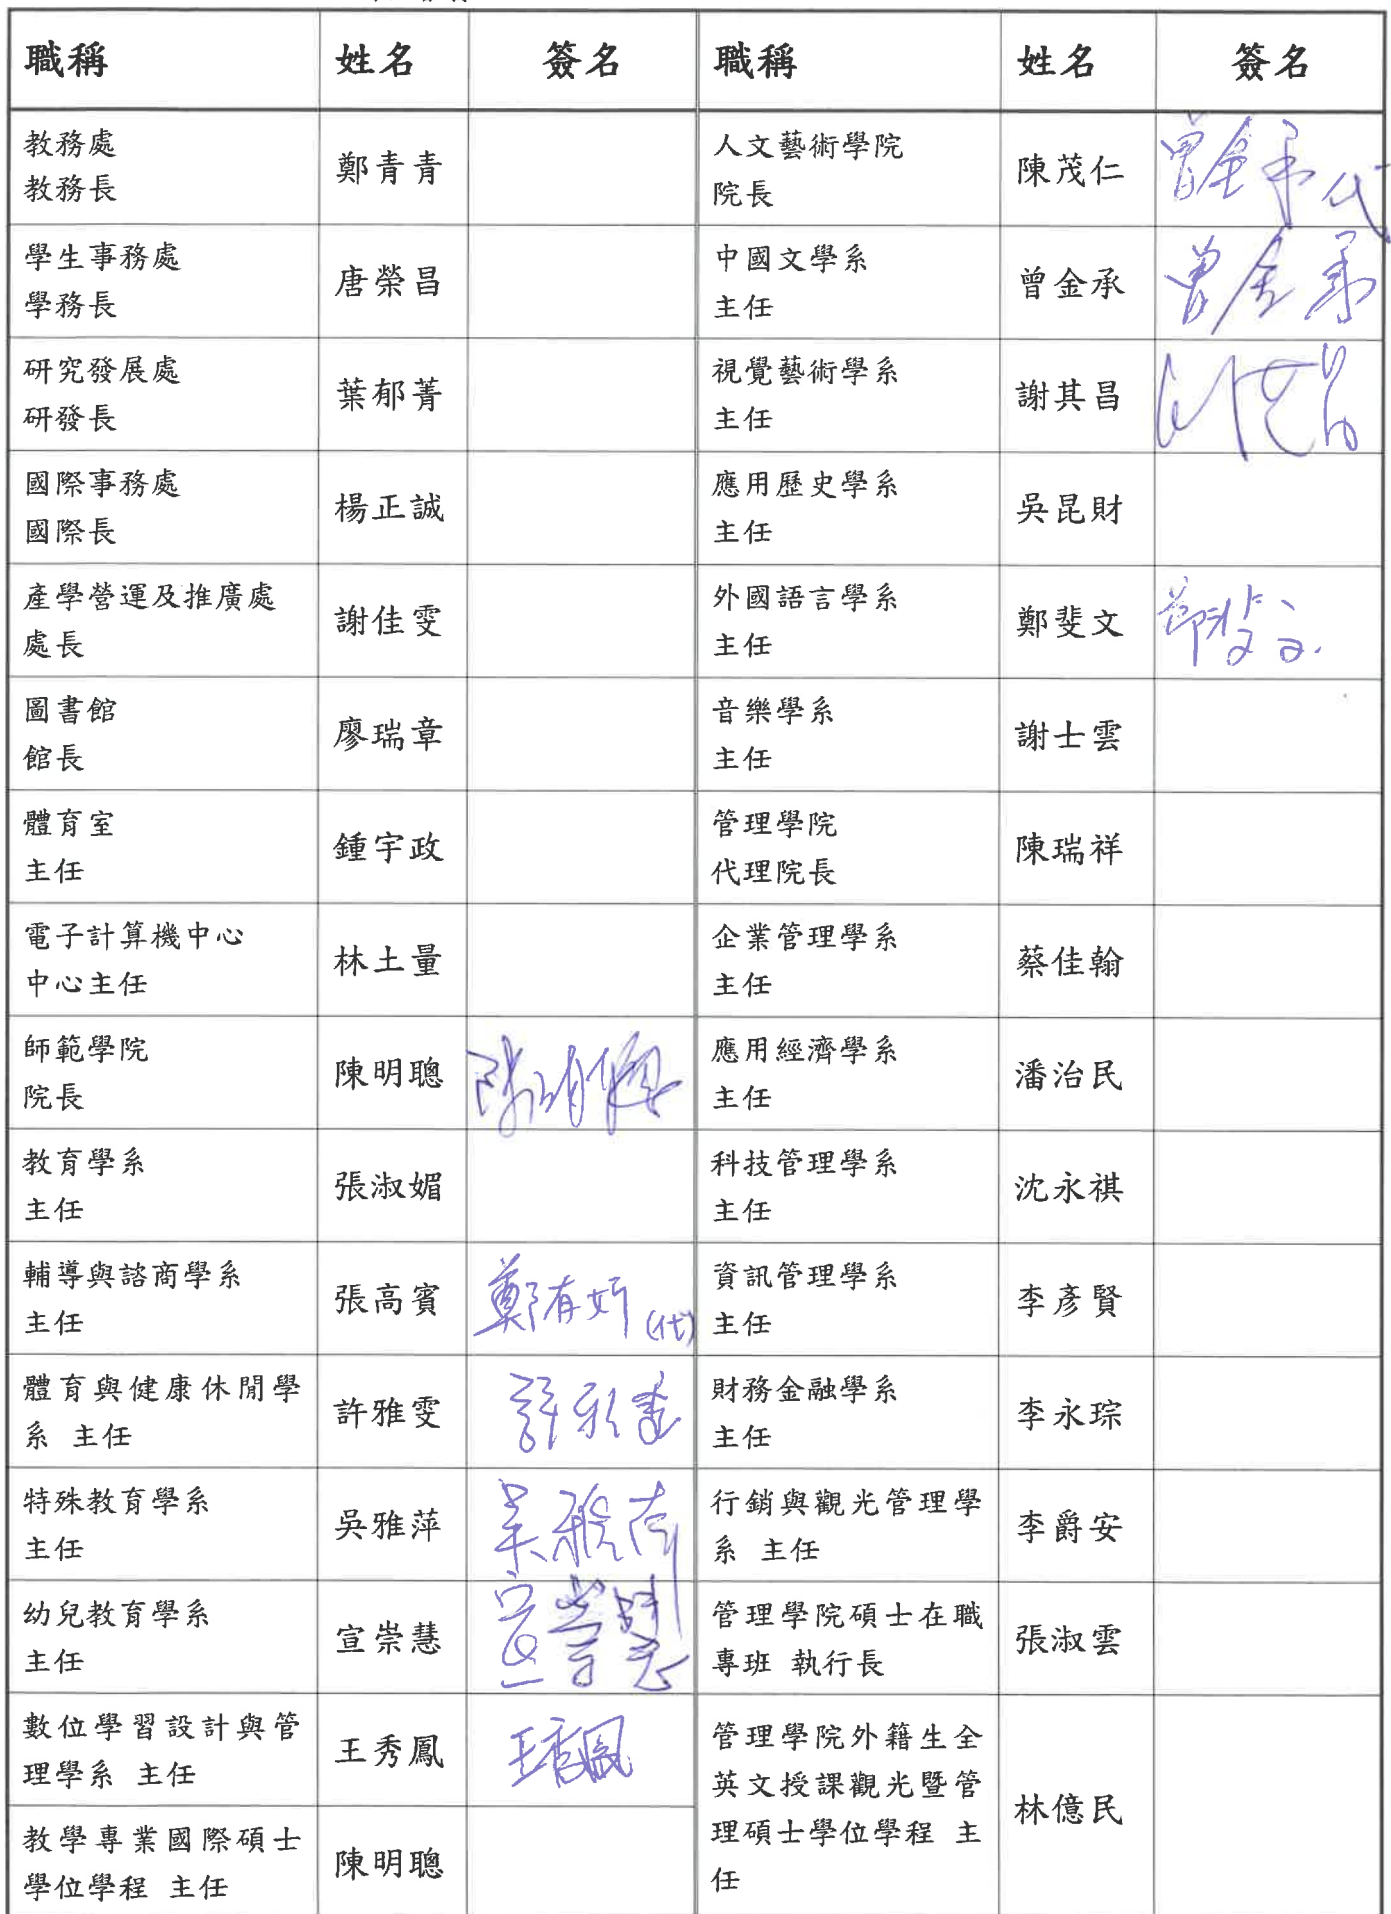 職稱 姓名 簽名 職稱 姓名 簽名
教務處
教務長
鄭青青
人文藝術學院
院長
陳茂仁
曾金承代
學生事務處
學務長
唐榮昌
中國文學系
主任
曾金承
曾金承
研究發展處
研發長
葉郁菁
視覺藝術學系
主任
謝其昌
國際事務處
國際長
楊正誠
應用歷史學系
主任
吳昆財
產學營運及推廣處
處長
謝佳雯
外國語言學系
主任
鄭斐文
鄭斐文
圖書館
館長
廖瑞章
音樂學系
主任
謝士雲
體育室
主任
鍾宇政
管理學院
代理院長
陳瑞祥
電子計算機中心
中心主任
林土量
企業管理學系
主任
蔡佳翰
師範學院
院長
陳明聰
陳明聰
應用經濟學系
主任
潘治民
教育學系
主任
張淑媚
科技管理學系
主任
沈永祺
輔導與諮商學系
主任
張高賓
鄭有妡(代)
資訊管理學系
主任
李彥賢
體育與健康休閒學
系 主任
許雅雯
許雅雯
財務金融學系
主任
李永琮
特殊教育學系
主任
吳雅萍
吳雅萍
行銷與觀光管理學
系 主任
李爵安
幼兒教育學系
主任
宣崇慧
宣崇慧
管理學院碩士在職
專班 執行長
張淑雲
數位學習設計與管
理學系 主任
王秀鳳
王秀鳳
管理學院外籍生全
英文授課觀光暨管
理碩士學位學程 主
任
林億民
教學專業國際碩士
學位學程 主任
陳明聰